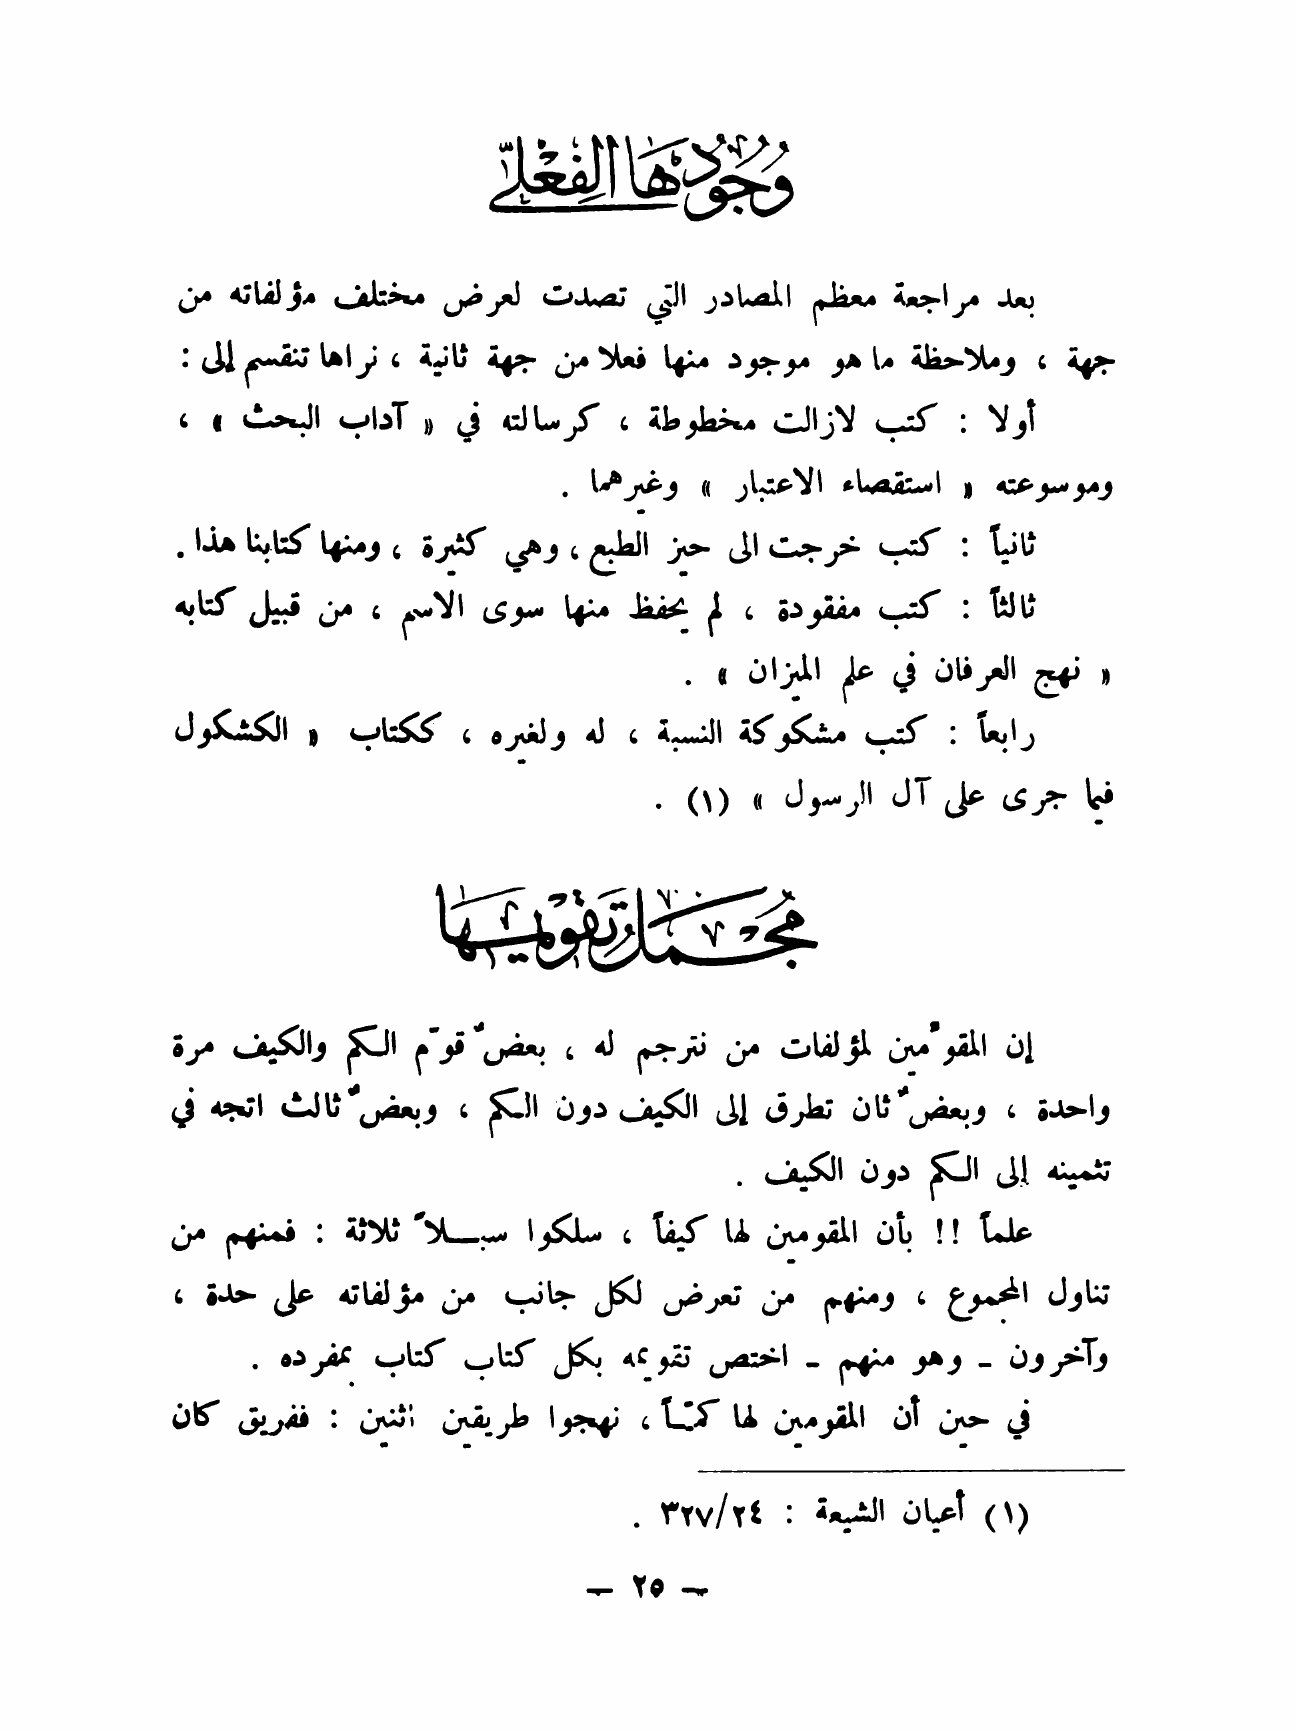 وُجُودُهَا الفِعْلِيّ
بعد مراجعة معظم المصادر التي تصدت لعرض مختلف مؤلفاته من
جهة ، وملاحظة ما هو موجود منها فعلا من جهة ثانية ، نراها تنقسم إلى :
أولا : كتب لازالت مخطوطة ، كرسالته في « آداب البحث » ،
وموسوعته « استقصاء الاعتبار » وغيرهما .
ثانياً : كتب خرجت الى حيز الطبع ، وهي كثيرة ، ومنها كتابنا هذا .
ثالثاً : كتب مفقودة ، لم يحفظ منها سوى الاسم ، من قبيل كتابه
« نهج العرفان في علم الميزان » .
رابعاً : كتب مشكوكة النسبة ، له ولغيره ، ككتاب « الكشكول
فيما جرى على آل الرسول » (١) .
مُجمَل تَقويمِهَا
إن المقوّمين لمؤلفات من نترجم له ، بعضٌ قوّم الكم والكيف مرة
واحدة ، وبعضٌ ثان تطرق إلى الكيف دون الكم ، وبعضٌ ثالث اتجه في
تثمينه إلى الكم دون الكيف .
علماً !! بأن المقومين لها كيفاً ، سلكوا سبلاً ثلاثة : فمنهم من
تناول المجموع ، ومنهم من تعرض لكل جانب من مؤلفاته على حدة ،
وآخرون - وهو منهم - اختص تقويمه بكل كتاب كتاب بمفرده .
في حين أن المقومين لها كمّاً ، نهجوا طريقين اثنين : ففريق كان
(١) أعيان الشيعة : ٣٢٧/٢٤ .
— ٢٥ —